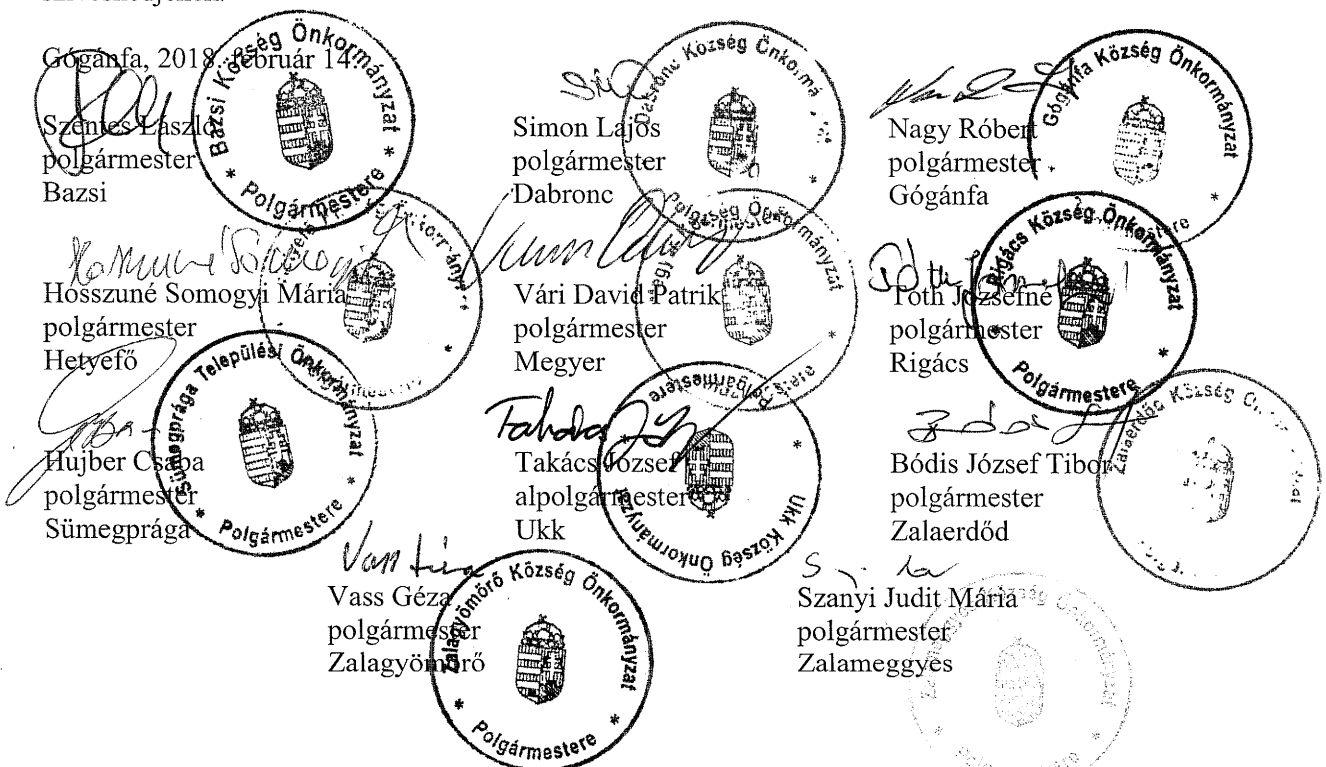 Gógánfa, 2018. február 14.
Szentes László
polgármester
Bazsi
Bazsi Község Önkormányzat
* Polgármestere *
Simon Lajos
polgármester
Dabronc
Dabronc Község
Nagy Róbert
polgármester
Gógánfa
Gógánfa Község Önkormányzat
Hosszuné Somogyi Mária
polgármester
Hetyefő
Vári David Patrik
polgármester
Megyer
Tóth Józsefné
polgármester
Rigács
Rigács Község Önkormányzat
* Polgármestere *
Hujber Csaba
polgármester
Sümegprága
Sümegprága Települési Önkormányzat
* Polgármestere *
Takács József
alpolgármester
Ukk
Ukk Község Önkormányzat
* Polgármestere *
Bódis József Tibor
polgármester
Zalaerdőd
Zalaerdőd Község
Vass Géza
polgármester
Zalagyömörő
Zalagyömörő Község Önkormányzat
* Polgármestere *
Szanyi Judit Mária
polgármester
Zalameggyes
Zalameggyes Község Önkormányzat